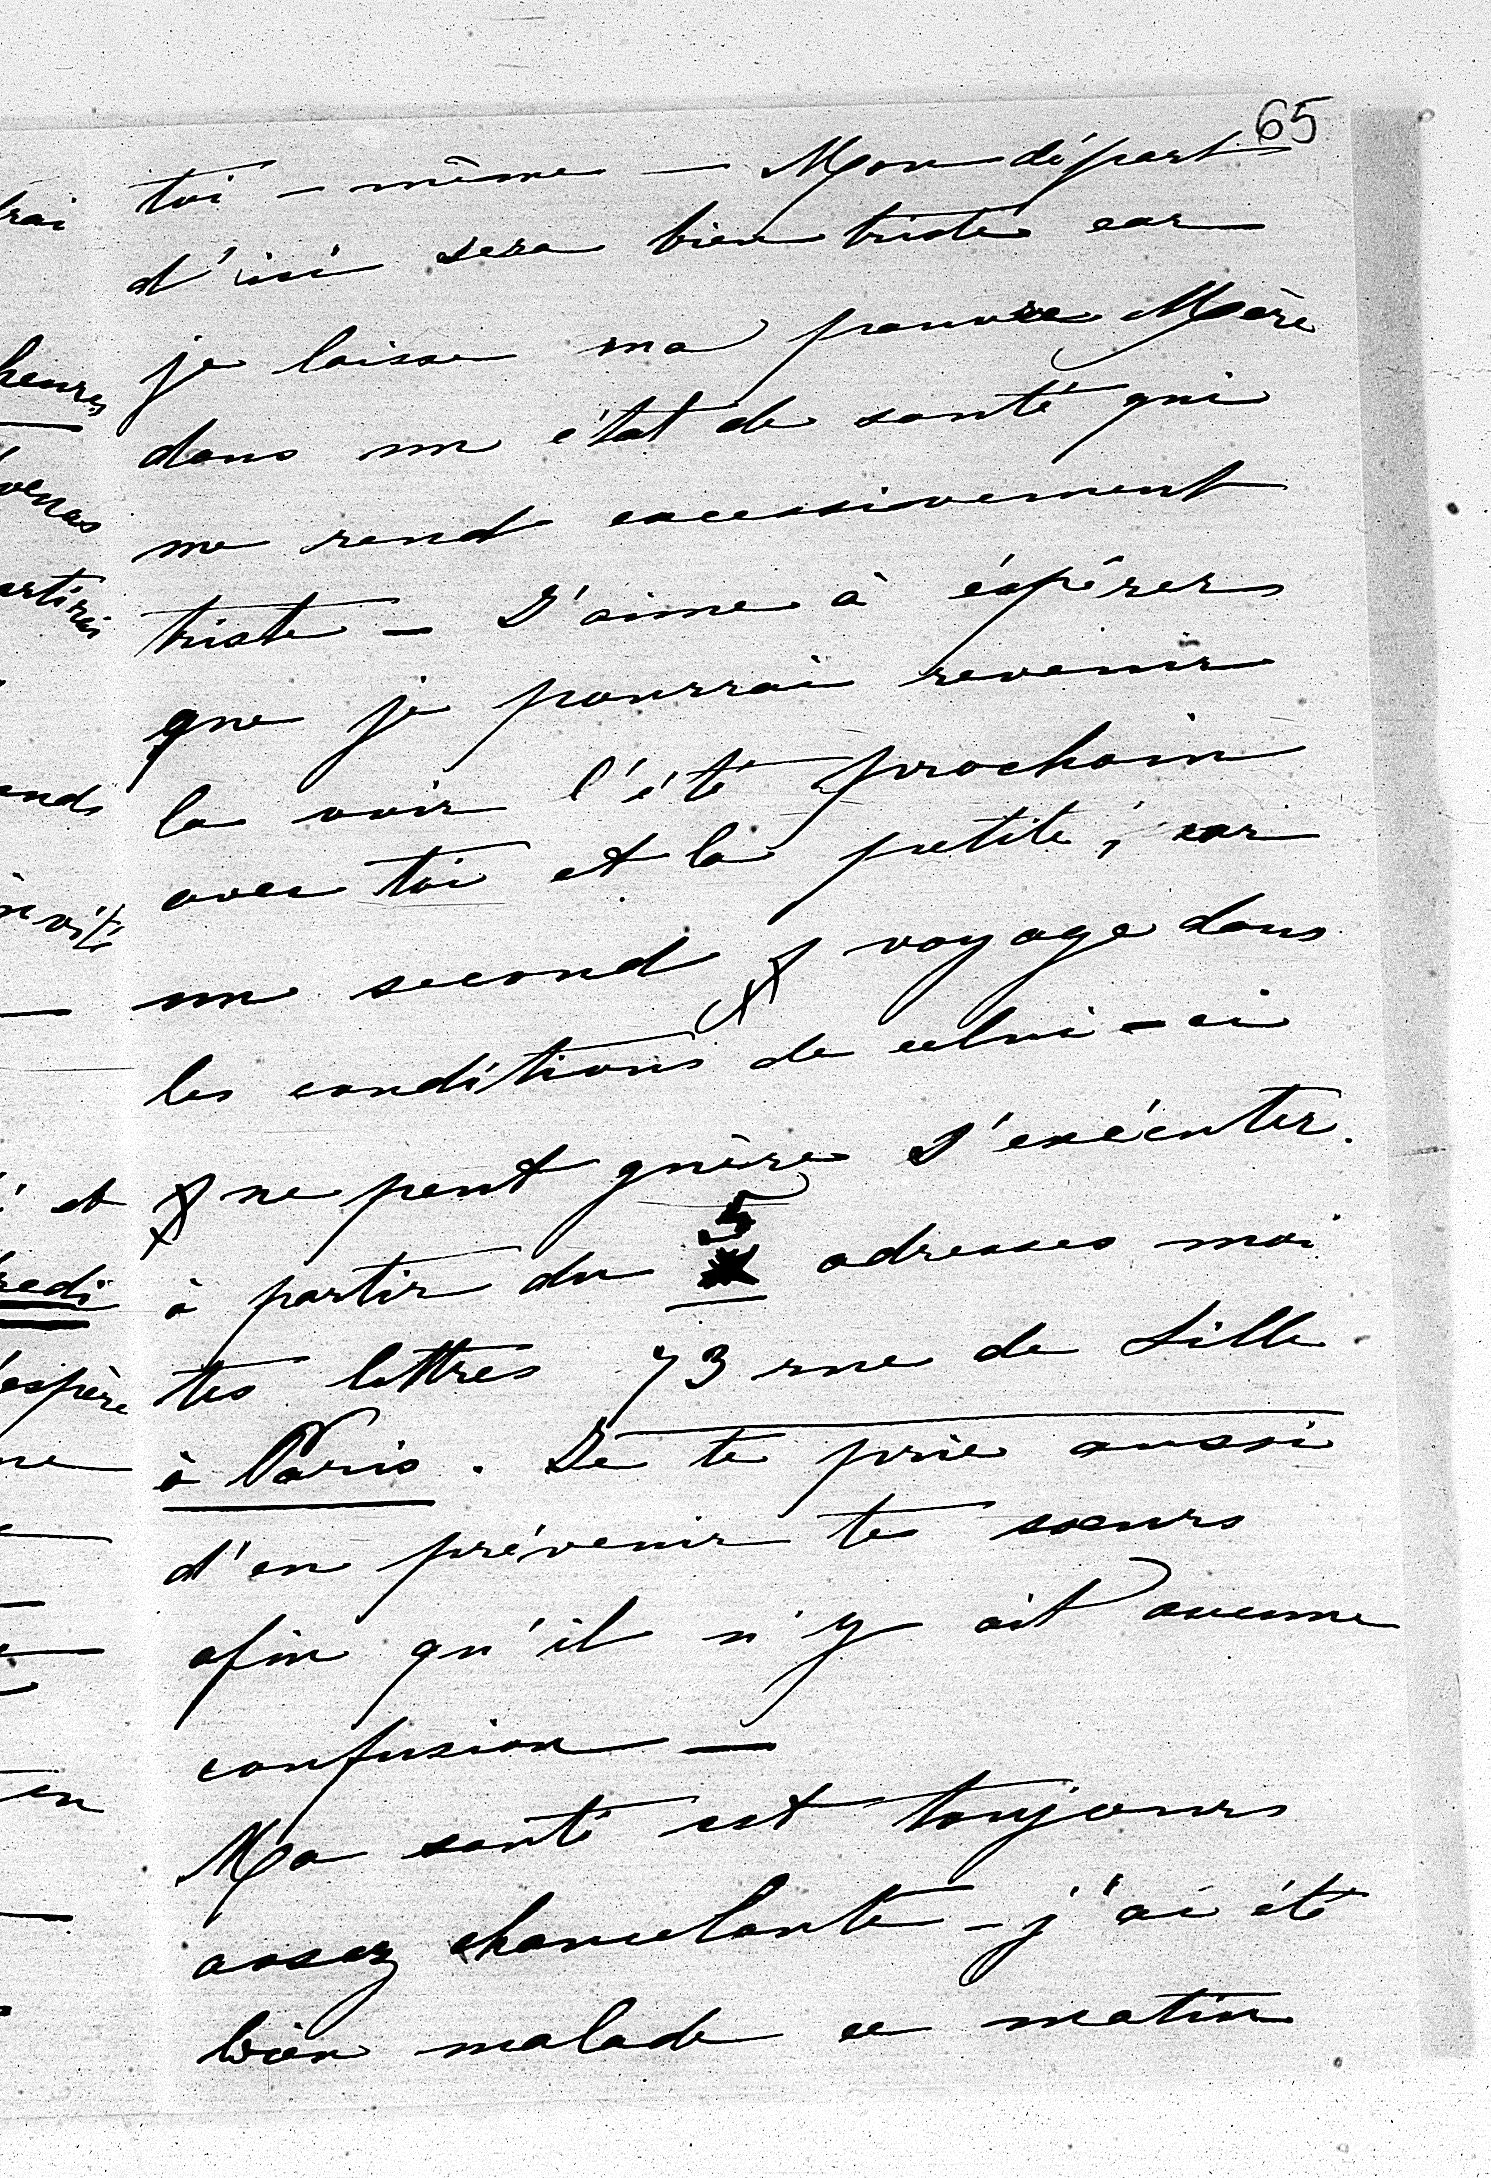 65
toi-même — Mon départ
d'ici sera bien triste car
je laisse ma pauvre Mère
dans un état de santé qui
me rend excessivement
triste — J'aime à éspérer
que je pourrai revenir
la voir l'été prochain
avec toi et la petite ; car
un second voyage dans
les conditions de celui-ci
ne peut guère s'exécuter.
à partir du 5 adresses moi
tes lettres 73 rue de Lille
à Paris. Je te prie aussi
d'en prévenir tes sœurs
afin qu'il n'y ait aucune
confusion —
Ma santé est toujours
assez chancelante - j'ai été
bien malade ce matin
heures
et
espère
en